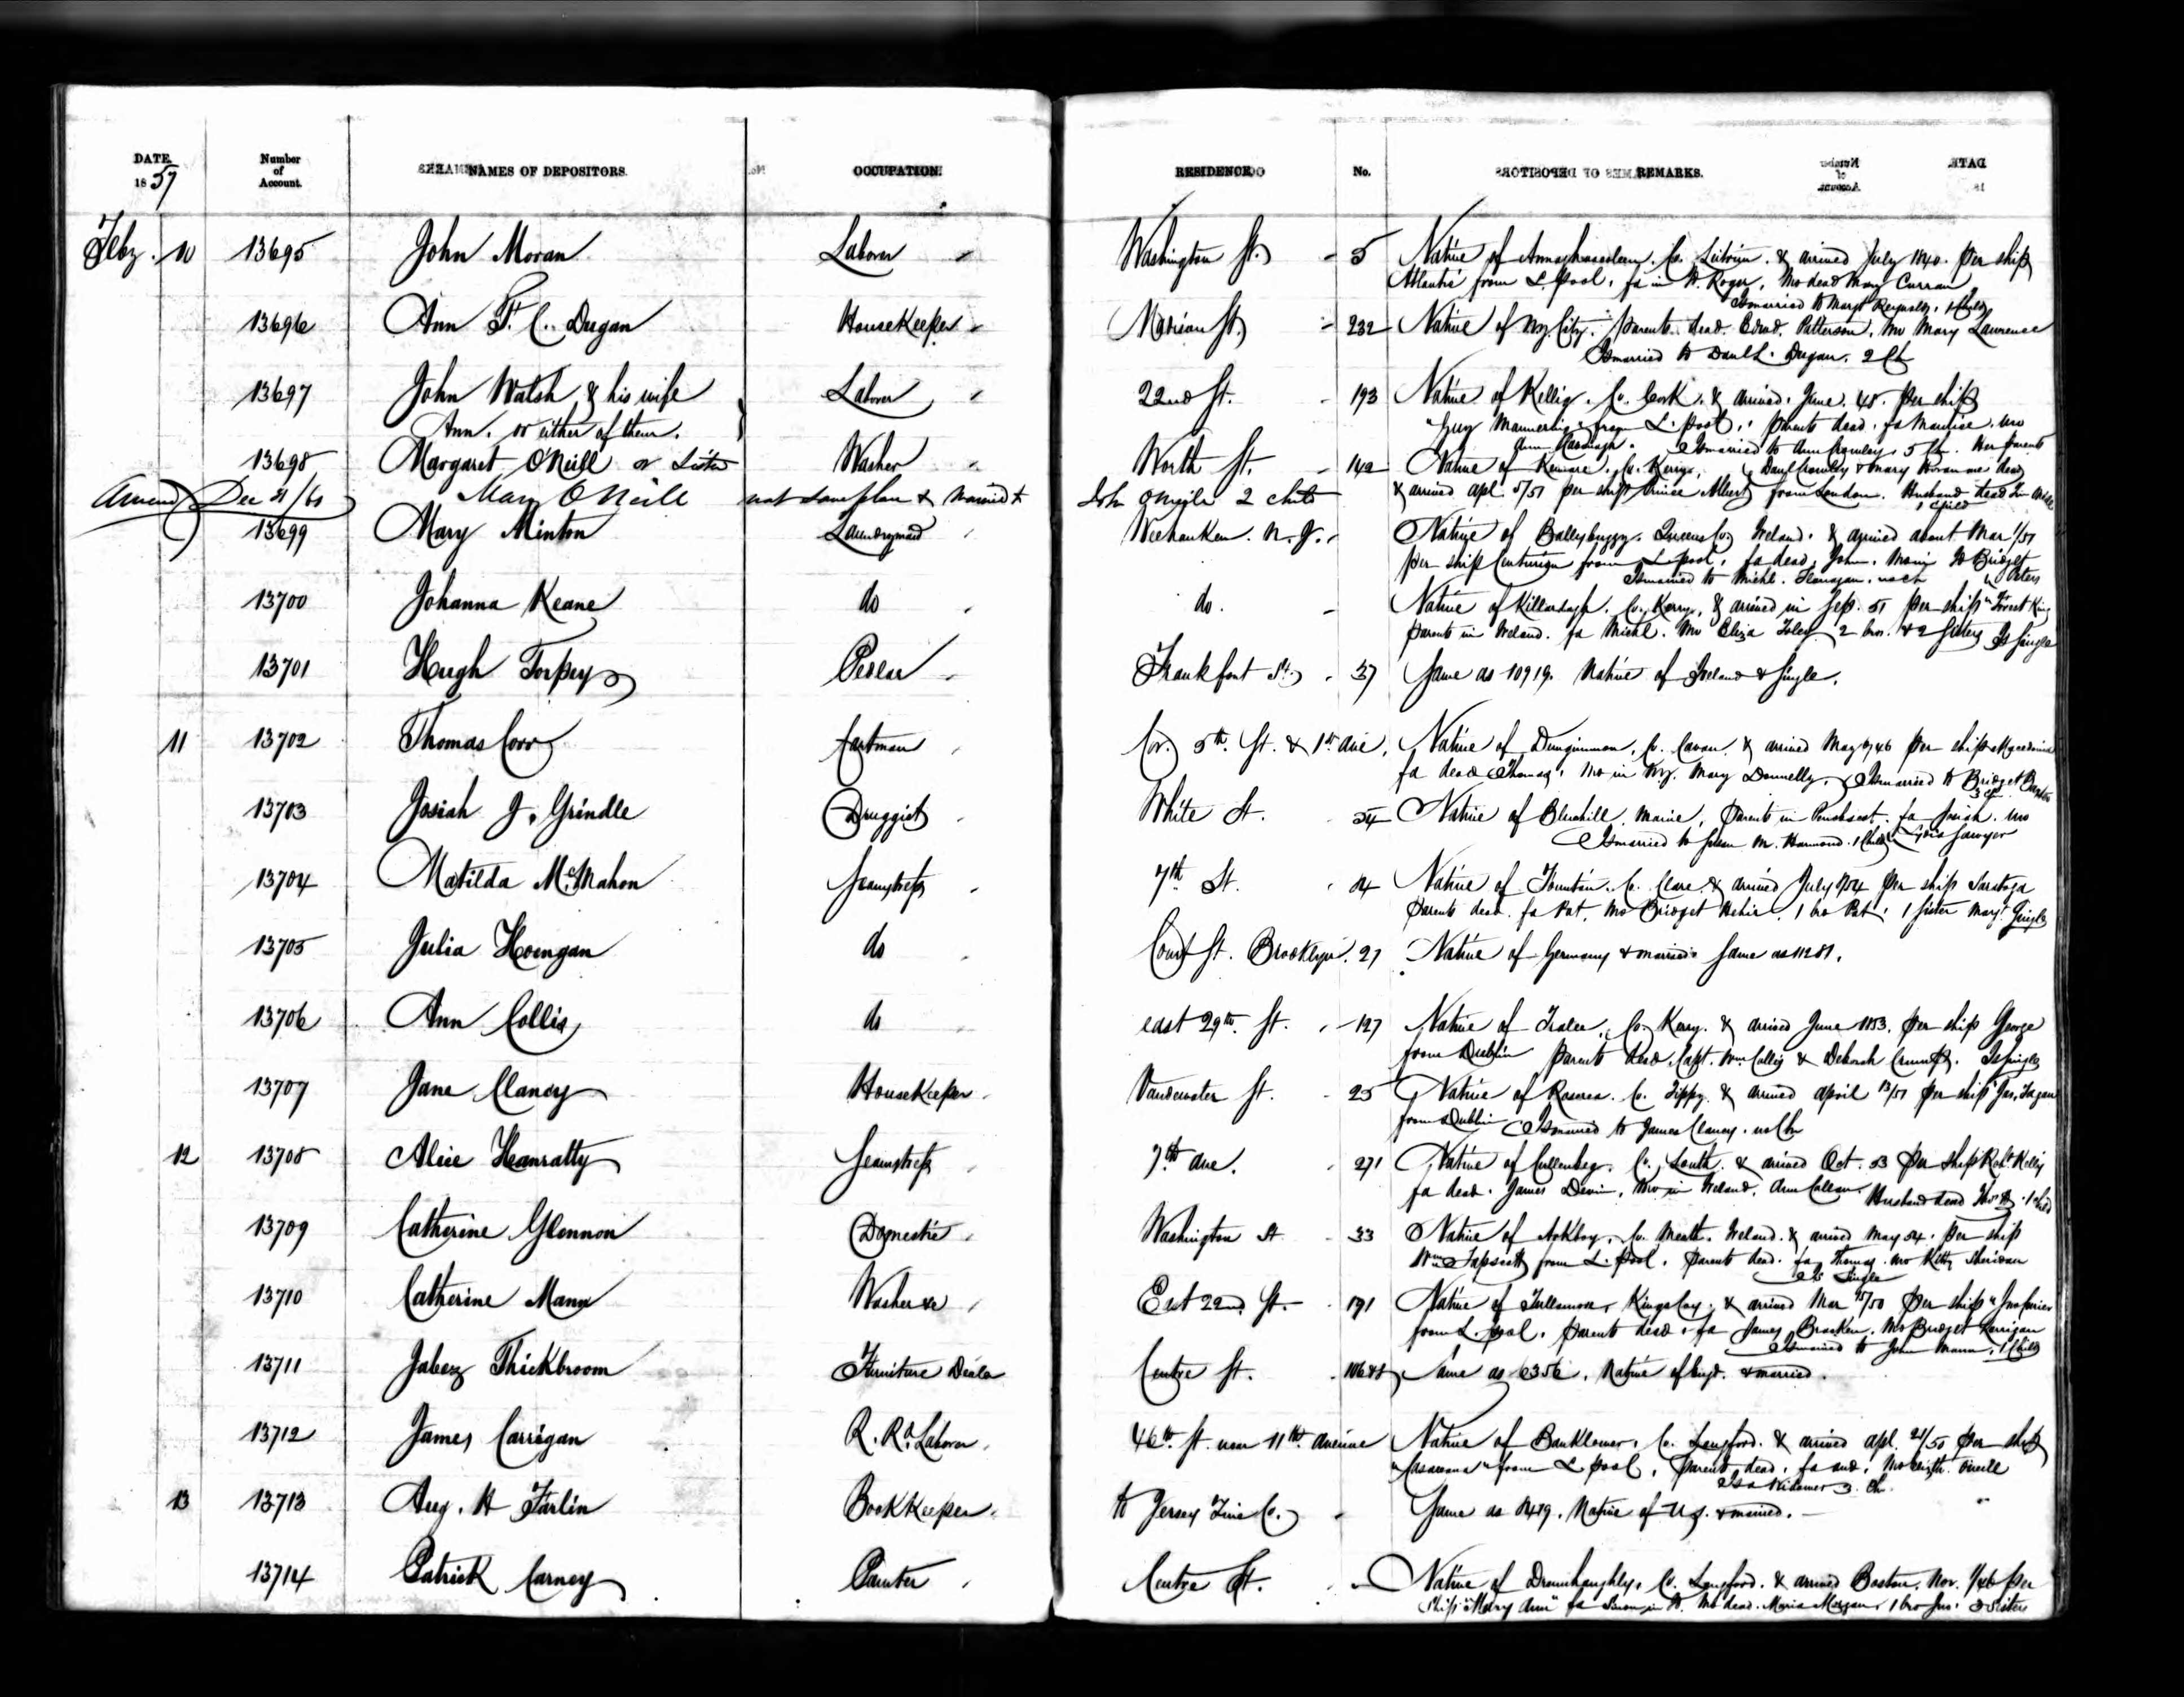 DATE. 1857
Number of Account.
NAMES OF DEPOSITORS.
OCCUPATION.
RESIDENCE.
No.
REMARKS.
Feby. 10 13695 John Moran Laborer Washington St. 5 Native of Co. Leitrim. & arrived July 1840. per ship
Atlantic from L. Pool, fa in Roger, Mo dead Mary Curran
Is married to Margt Reynolds, 1 Child
13696 Ann F. C. Dugan HouseKeeper Madison St. 232 Native of N.Y. City. parents dead. Edwd. Patterson, Mo Mary Lawrence
Is married to Danl L. Dugan. 2 Ch
13697 John Walsh & his wife Laborer 22nd St. 193 Native of Co. Cork. & arrived June. 48. per ship
Ann. or either of them.
"Guy Mannering" from L. Pool, parents dead. fa Maurice. mo
Ann Is married to Ann Crowley, 5 Ch. Her parents
13698 Margaret O'Neill or Sister Washer Worth St. 142 Native of Kenmare. Co. Kerry, Danl Crowley & Mary dead
Amend Dec 21/60 Mary O Neill not same plan & married to John O Neile 2 child
& arrived Apl. 5/51 per ship Prince Albert from London. Husband dead
1 child
13699 Mary Minton Laundrymaid Weehauken. N.J. Native of Ballybuggy. Queens Co. Ireland. & arrived about Mar 1/51
per ship Centurion from L. pool, fa dead, John, Mo in Bridget
Is married to Michl. Flanagan. no ch Peters
13700 Johanna Keane do do. Native of Co. Kerry, & arrived in Sep. 51 per ship "Forest King
parents in Ireland. fa Michl. Mo Eliza Foley 2 bros. & 2 Sisters Is Single
13701 Hugh Torpey Pedlar Frankfort St. 37 Same as 10919. Native of Ireland & Single.
11 13702 Thomas Corr Cartman Cor. 5th. St. & 1st ave. Native of Co. Cavan. & arrived May 46 per ship Macedonia
fa dead Thomas. Mo in N.Y. Mary Donnelly. Is married to Bridget
13703 Josiah J. Grindle Druggist White St. 54 Native of Bluehill. Maine, Parents in Penobscot. fa Josiah. mo
Is married to Susan M. Harmond. 1 Child Sawyer
13704 Matilda McMahon Seamstress 7th St. 84 Native of Co. Clare. & arrived July 54 per ship Saratoga
Parents dead. fa Pat, Mo Bridget Hehir. 1 bro Pat. 1 Sister Margt. Single
13705 Julia Hoengan do Court St. Brooklyn. 27 Native of Germany & married. Same as 11281.
13706 Ann Collis do east 29th. St. 127 Native of Tralee, Co. Kerry. & arrived June 1853. per ship George
from Dublin parents dead. Capt. Wm Collis & Deborah Is single
13707 Jane Clancy HouseKeeper Vandewater St. 25 Native of Roscrea. Co. Tippy. & arrived april 13/51 per ship "Jas. Fagan
from Dublin Is married to James Clancy. no Chn
12 13708 Alice Hanratty Seamstress 7th ave. 271 Native of Co. Louth. & arrived Oct. 53 per ship Robt. Kelly
fa dead. James Devin, Mo in Ireland, Ann Callan. Husband dead 1 child
13709 Catherine Glennon Domestic Washington St 33 Native of Co. Meath. Ireland. & arrived May 54. per ship
Wm Tapscott from L. Pool. parents dead. fa Thomas. mo Kitty Sheridan
Is Single
13710 Catherine Mann Washer &c East 22nd. St. 191 Native of Tullamore, Kings Coy. & arrived Mar 15/50 per ship
from L. Pool. Parents dead. fa James Bracken. Mo Bridget Kerrigan
Is married to John Mann. 1 Child
13711 Jabez Thickbroom Furniture Dealer Centre St. 106 & 8 Same as 6356. Native of Engd. & married.
13712 James Carrigan R. Rd. Laborer 46th. St. near 11th. avenue Native of Co. Longford. & arrived apl. 21/50 per ship
from L. Pool, parents dead. fa and. Mo Oneill
Is a Widower 3. Ch.
13 13713 Aug. H Farlin BookKeeper to Jersey Zinc Co. Same as Native of U.S. & married.
13714 Patrick Carney Painter Centre St. Native of Co. Longford. & arrived Boston. Nov. 1/46 per
Ship "Mary Ann" fa Mo dead. Maria Morgan. 1 bro Jno. 3 Sisters